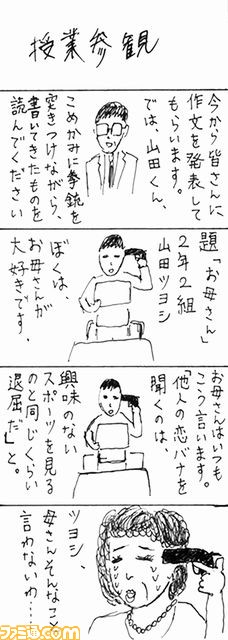 授業参観
今から皆さんに
作文を発表して
もらいます。
では、山田くん、
こめかみに拳銃を
突きつけながら、
書いてきたものを
読んでください
題「お母さん」
2年2組
山田ツヨシ
ぼくは、
お母さんが
大好きです。
お母さんはいつも
こう言います。
「他人の恋バナを
聞くのは、
興味のない
スポーツを見る
のと同じくらい
退屈だ」と。
ツヨシ、
母さんそんなこと
言わないわ…
ファミ通.com